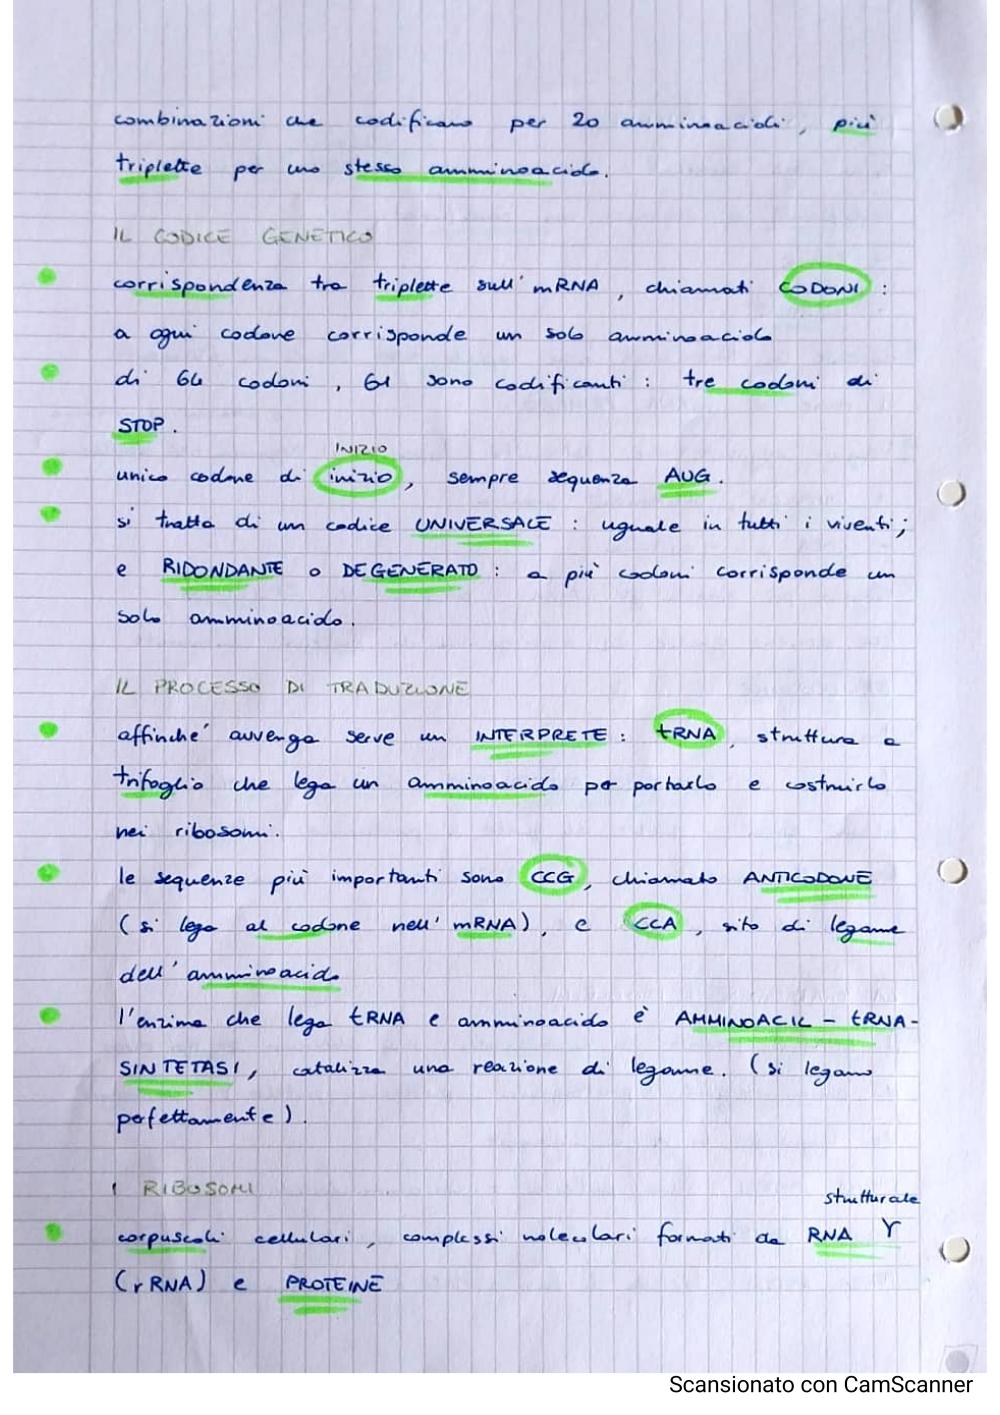 combinazioni che codificano per 20 amminoacidi, più
triplette per uno stesso amminoacido.
IL CODICE GENETICO
corrispondenza tra triplette sull'mRNA, chiamati CODONI:
a ogni codone corrisponde un solo amminoacido
di 64 codoni, 61 sono codificanti: tre codoni di
STOP.
INIZIO
unico codone di inizio, sempre sequenza AUG.
si tratta di un codice UNIVERSALE: uguale in tutti i viventi;
e RIDONDANTE o DEGENERATO: a più codoni corrisponde un
solo amminoacido.
IL PROCESSO DI TRADUZIONE
affinché avvenga serve un INTERPRETE: tRNA, struttura a
trifoglio che lega un amminoacido per portarlo e costruirlo
nei ribosomi.
le sequenze più importanti sono CCG, chiamato ANTICODONE
(si lega al codone nell'mRNA), e CCA, sito di legame
dell'amminoacido
l'enzima che lega tRNA e amminoacido è AMMINOACIL-tRNA-
SINTETASI, catalizza una reazione di legame. (si legano
perfettamente).
I RIBOSOMI
strutturale
corpuscoli cellulari, complessi molecolari formati da RNA
(rRNA) e PROTEINE
Scansionato con CamScanner